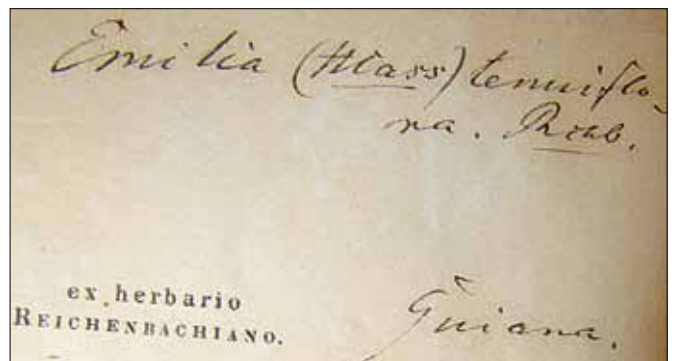 Emilia (Hass) tenuiflo-
ra. Rchb.
ex herbario
REICHENBACHIANO.
Guiana.